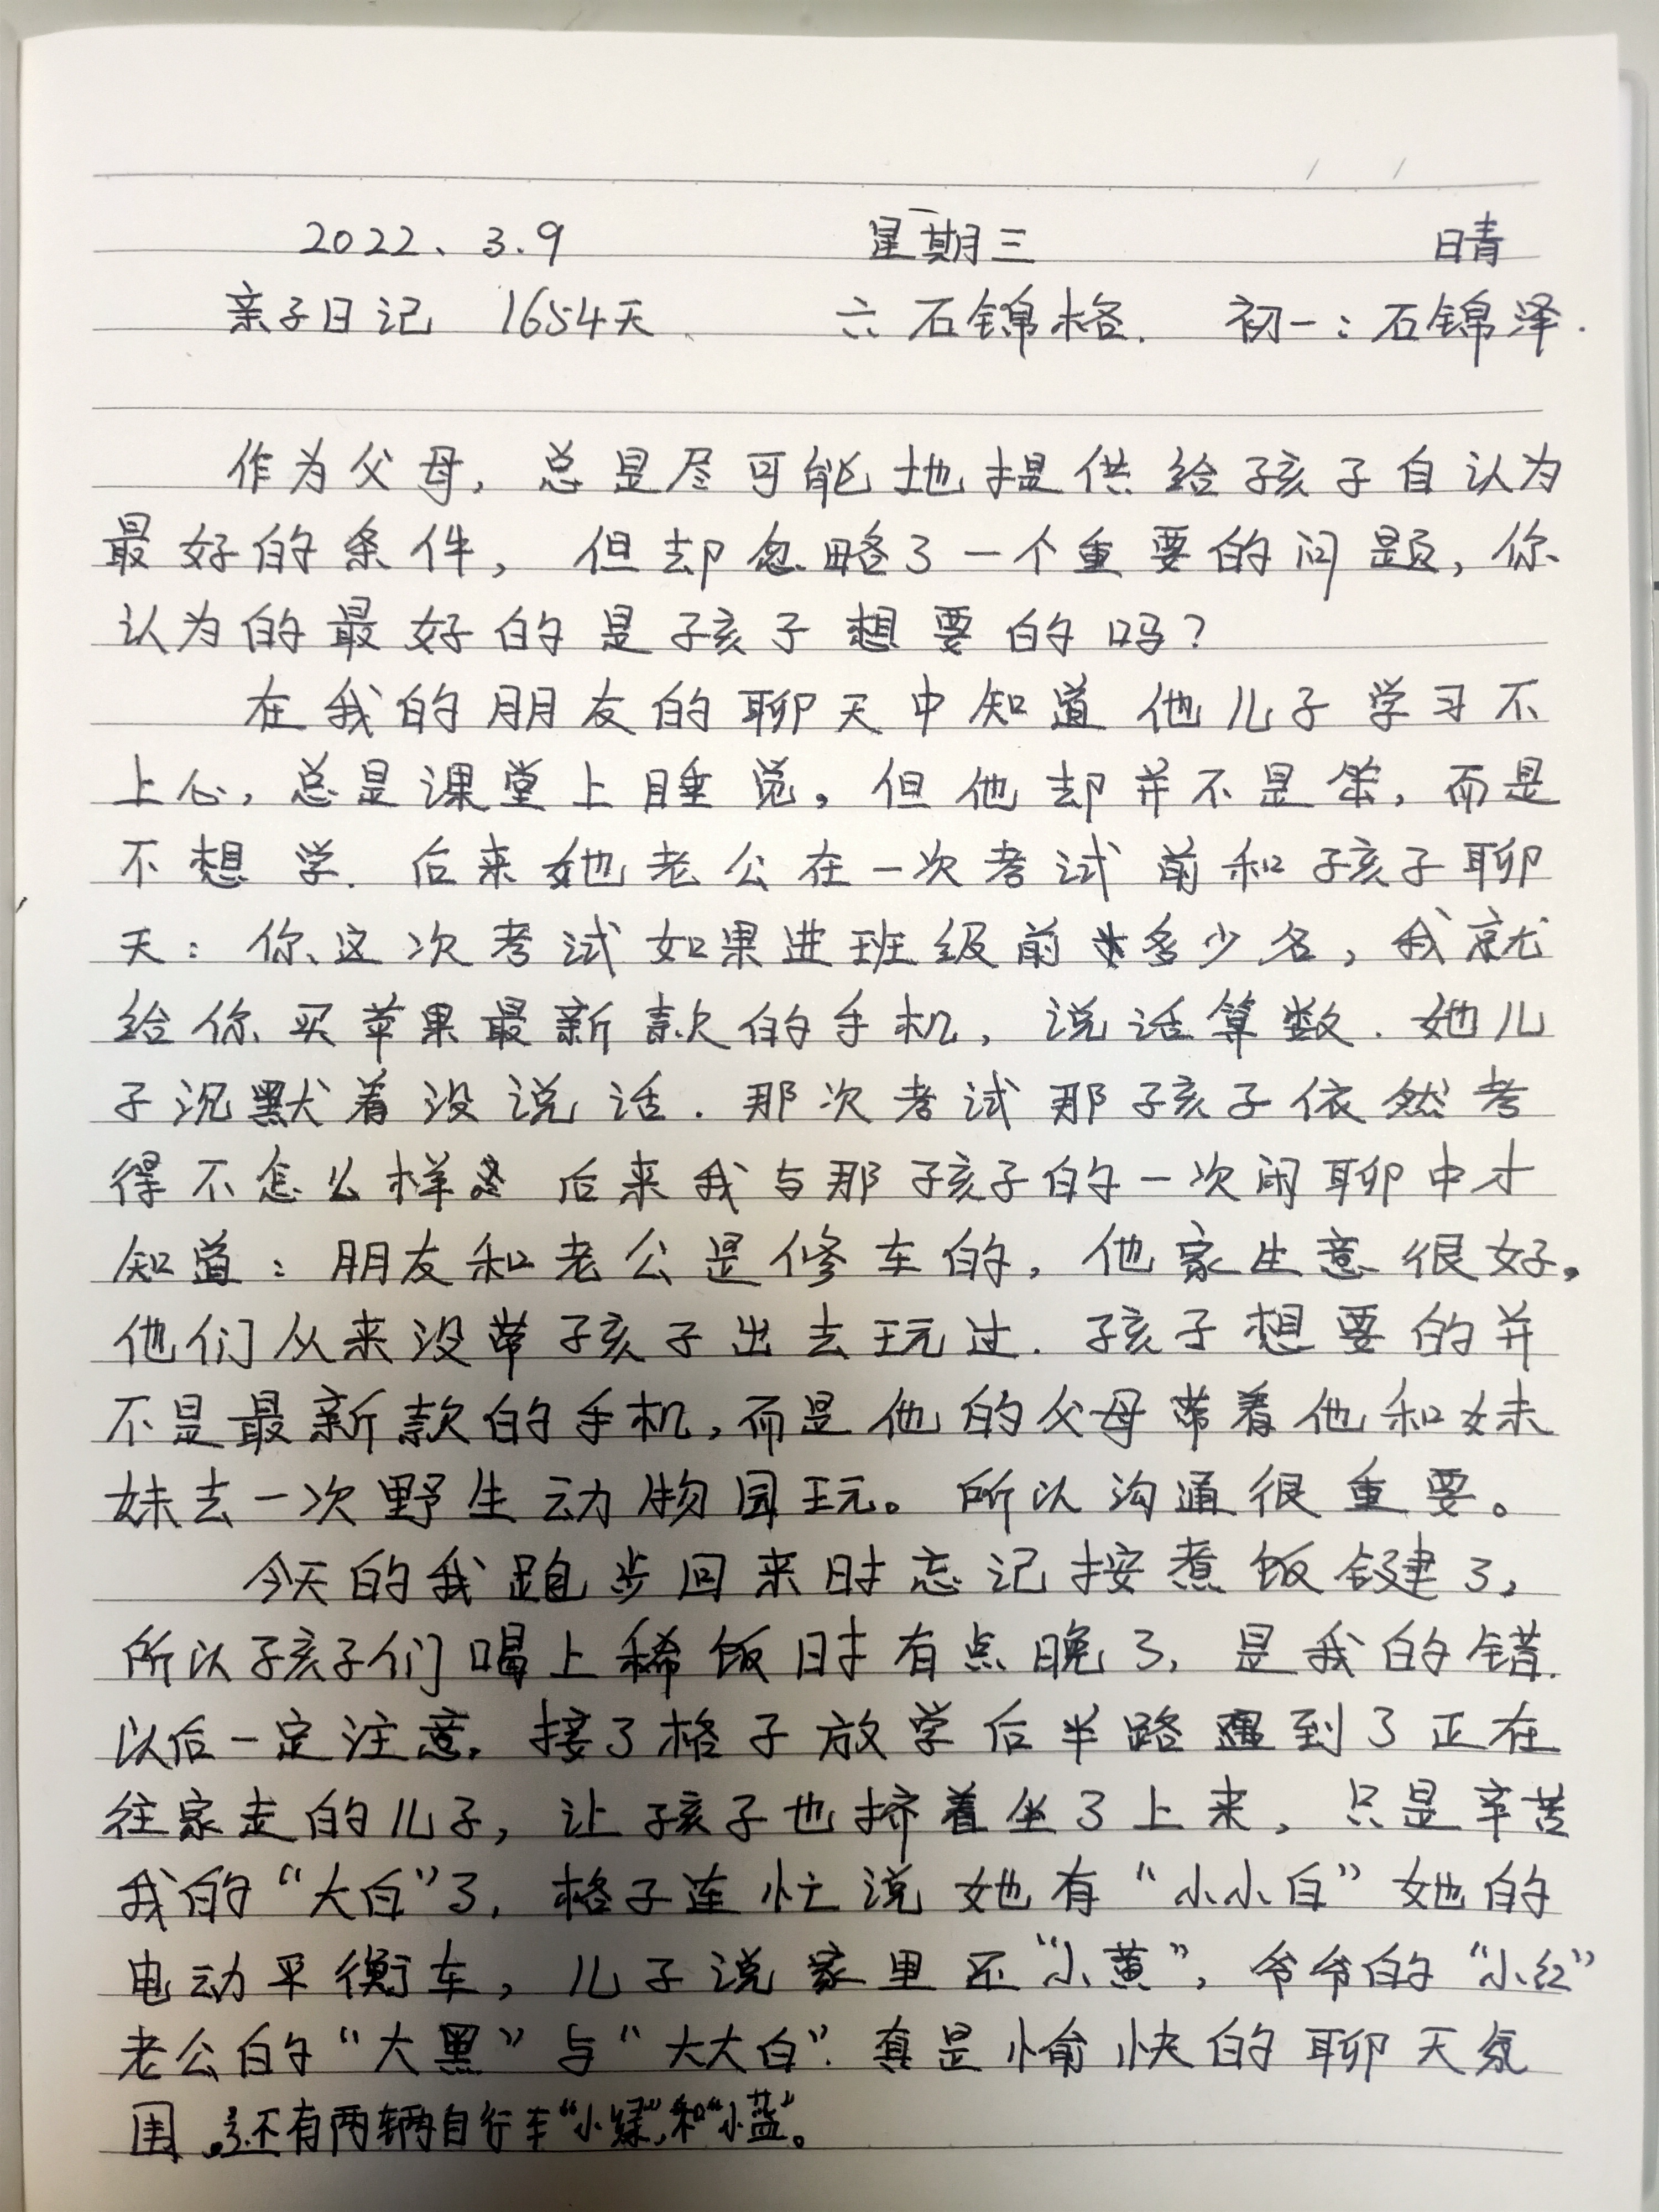 2022、3.9 星期三 晴
亲子日记 1654天. 六 石锦格. 初一：石锦泽.
作为父母，总是尽可能地提供给孩子自认为
最好的条件，但却忽略了一个重要的问题，你
认为的最好的是孩子想要的吗？
在我的朋友的聊天中知道他儿子学习不
上心，总是课堂上睡觉，但他却并不是笨，而是
不想学.后来她老公在一次考试前和孩子聊
天：你这次考试如果进班级前多少名，我就
给你买苹果最新款的手机，说话算数.她儿
子沉默着没说话.那次考试那孩子依然考
得不怎么样。后来我与那孩子的一次闲聊中才
知道：朋友和老公是修车的，他家生意很好。
他们从来没带孩子出去玩过.孩子想要的并
不是最新款的手机，而是他的父母带着他和妹
妹去一次野生动物园玩。所以沟通很重要。
今天的我跑步回来时忘记按煮饭键了，
所以孩子们喝上稀饭时有点晚了，是我的错.
以后一定注意.接了格子放学后半路遇到了正在
往家走的儿子，让孩子也挤着坐了上来，只是辛苦
我的“大白”了，格子连忙说她有“小小白”她的
电动平衡车，儿子说家里还“小黄”，爷爷的“小红”
老公的“大黑”与“大大白”.真是愉快的聊天氛
围.还有两辆自行车“小绿”，和“小蓝”。